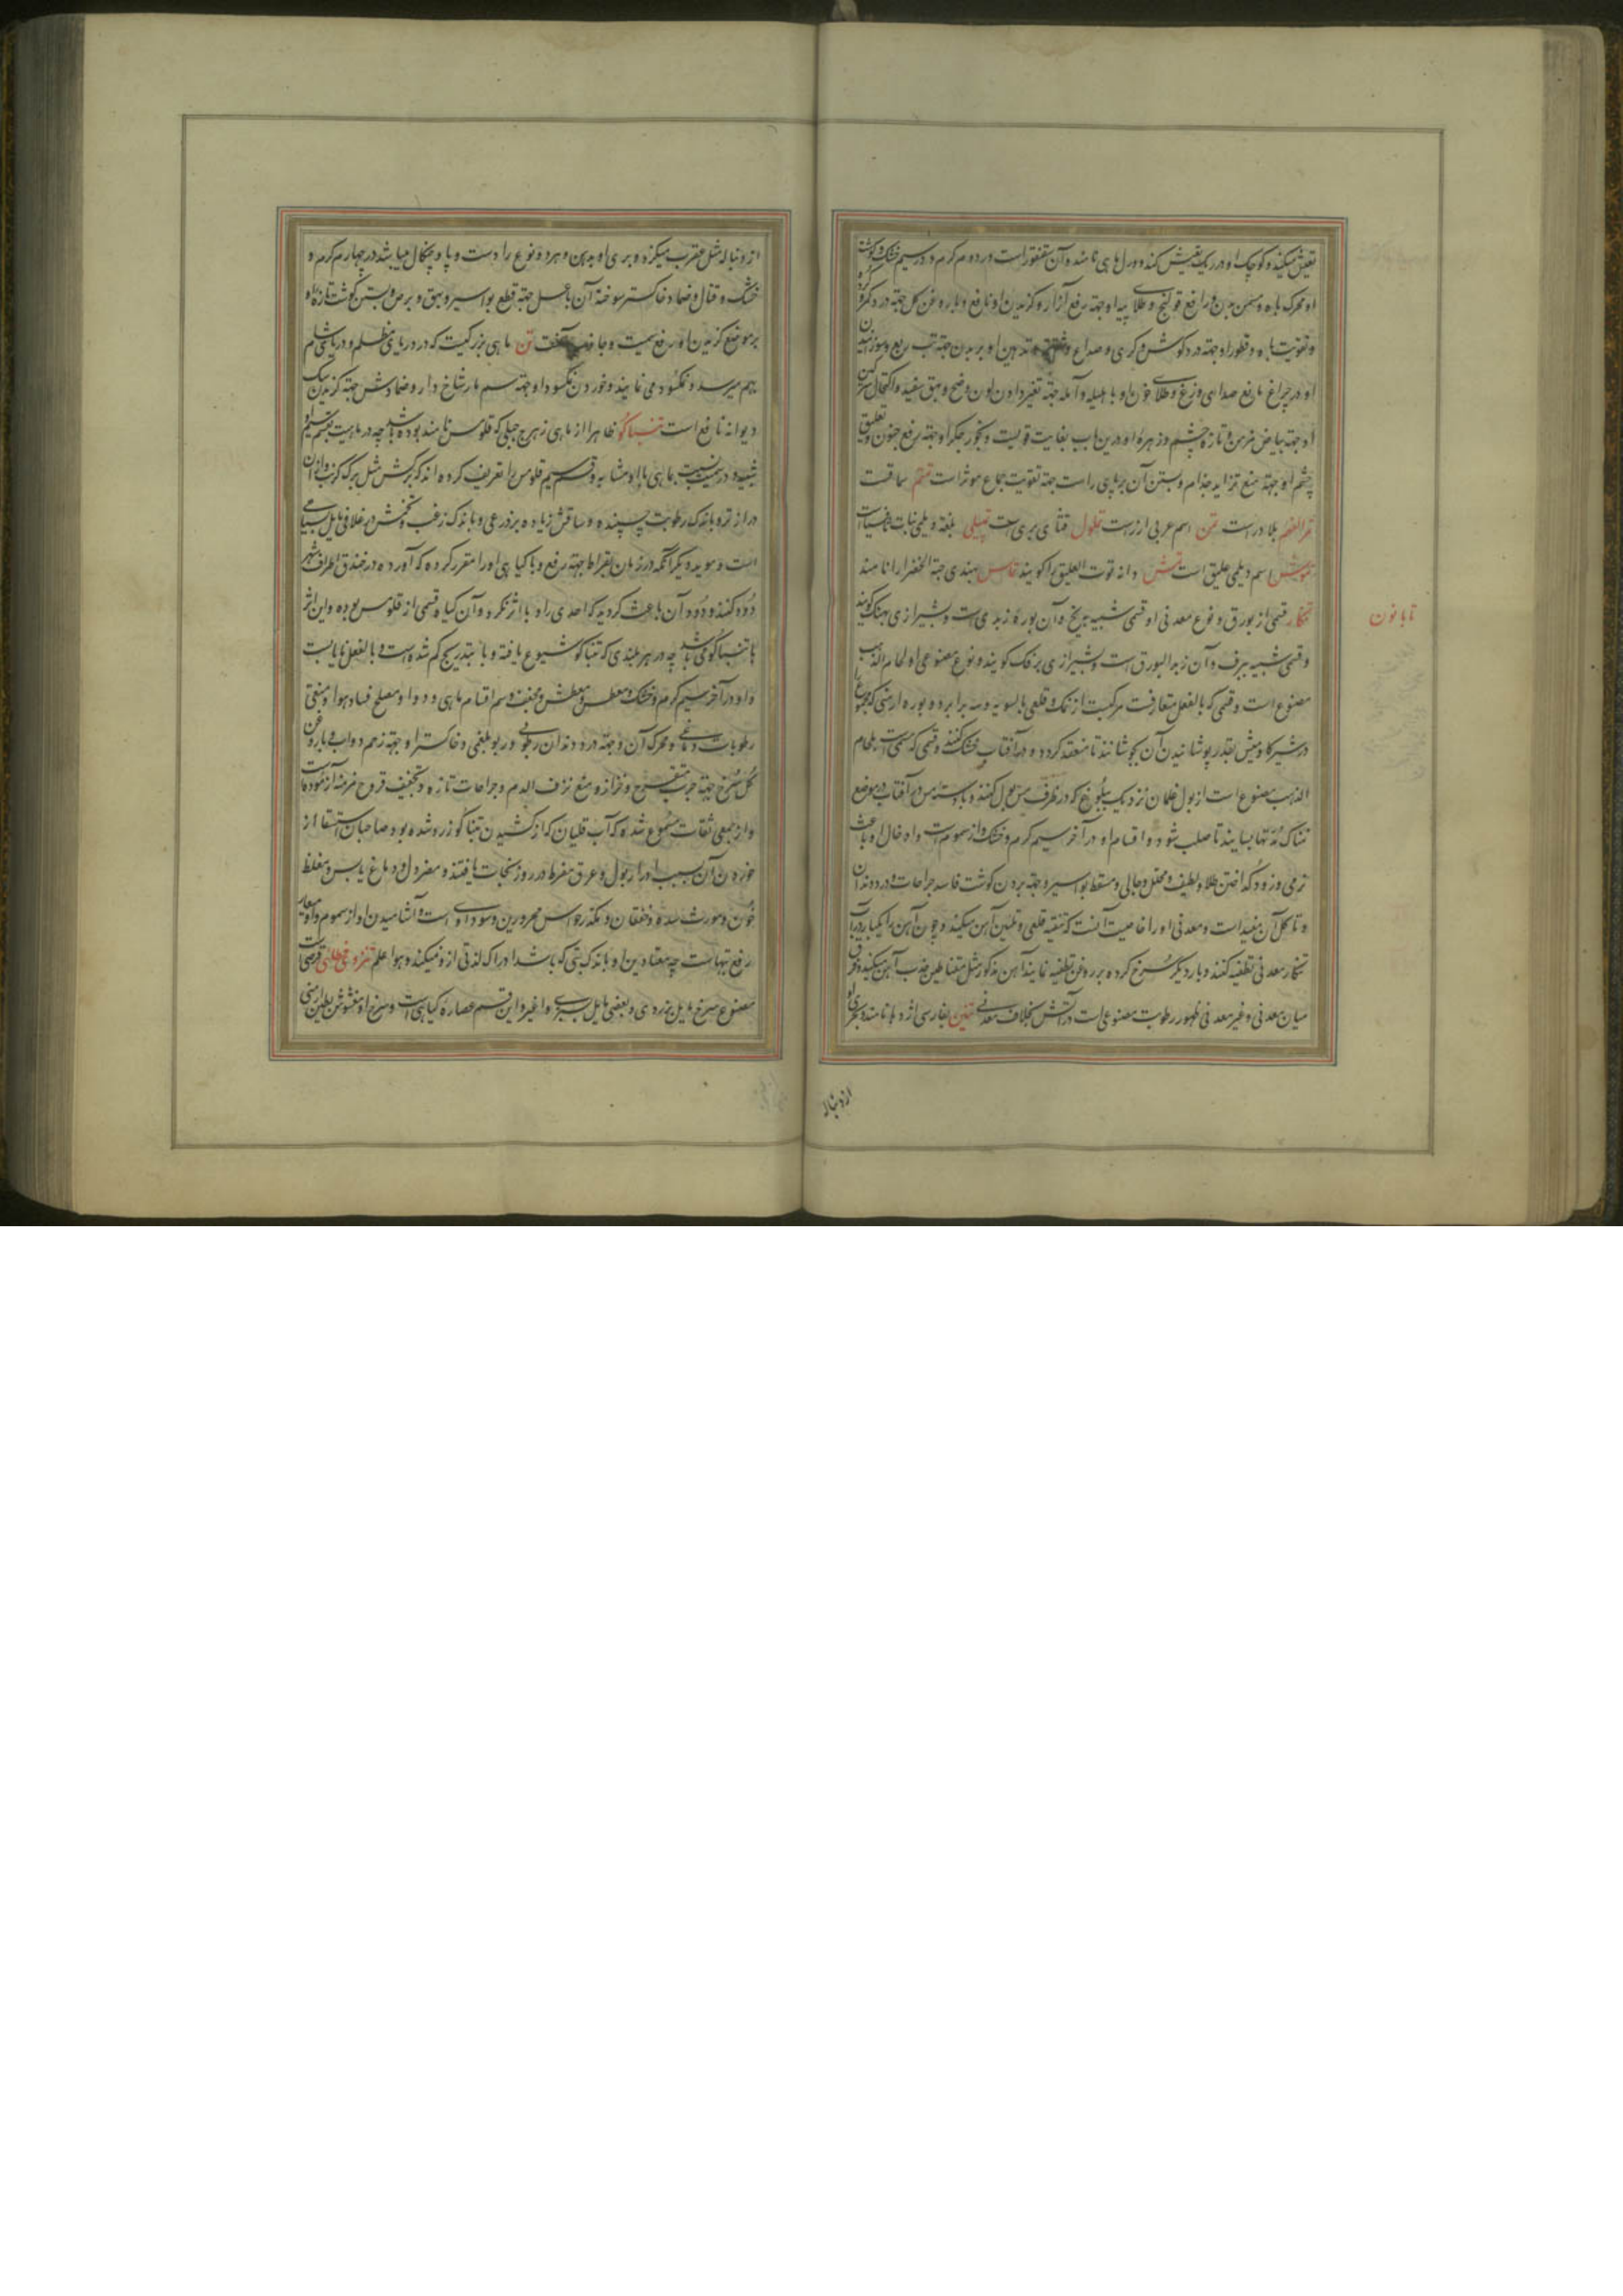 تعیش میکند و کوچک او در ریک تعیش کند و ورل مای نامند و آن سقنقور است در دوم کرم و در سیم خشک و کوشت
او محرک باه و مسمن بدن و رافع قولنج و طلای پیه او جهة رفع آزار و کزیدن او نافع و با روغن کل جهة درد کمر و کرده
و تقویت باه و قطور او جهة درد کوش و کری و صداع و شقیقه و تدهین او بر بدن جهة تب ربع و سوزانیدن
او در چراغ مانع صدای وزغ و طلای خون او با هلیله و آمله جهة تغیر دادن لون وضح و بهق سفید و اکتحال سرکین
او جهة بیاض مزمن و تازه چشم و زهره او درین باب بغایت قویست و بخور جکر او جهة رفع جنون و تعلیق
چشم او جهة منع تزاید جذام و بستن آن بر پای راست جهة تقویت جماع موثر است تمتم سماقست
تمر الفهم بلادر است تمن اسم عربی ارزست تملول قثای بری است تمیلی بلغة دیلمی نبات بیضیاست
تموش اسم دیلمی علیق است تمش دانه توت العلیق را کویند تماس بهندی حبة الخضرا را نامند
تنکار قسمی از بورق و نوع معدنی او قسمی شبیه بریخ و آن بوره زبدی است و بشیرازی بهنک کویند
و قسمی شبیه ببرف و آن زبد البورق است و بشیرازی برفک کویند و نوع مصنوعی او لحام الذهب
مصنوع است و قسمی که بالفعل متعارفست مرکبست از نمک و قلعی بالسویه و سه برابر دو بوره ارمنی که مجموع را
در شیر کاومیش بقدر پوشانیدن آن بجوشانند تا منعقد کردد و در آفتاب خشک کنند و قسمی که مسمی است بلحام
الذهب مصنوع است از بول غلمان نزدیک ببلوغ که در ظرف مس بول کنند و با دسته مس در آفتاب در موضع
نمناک مدتها بسایند تا صلب شود و اقسام او در آخر سیم کرم و خشک و از سموم است و ادخال او باعث
نرمی و زود کداختن طلا و لطیف و محلل و جالی و مسقط بواسیر و جهة بردن کوشت فاسد جراحات و درد دندان
و تاکل آن مفید است و معدنی او را خاصیت آنست که تنقیه قلعی و تلیین آهن میکند و چون آهن را یکبار در آب
تنکار معدنی تطفیه کنند و بار دیکر سرخ کرده بر روغن تطفیه نمایند آهن مذکور مثل مقناطیس جذب آهن میکند و فرق
میان معدنی و غیر معدنی ظهور رطوبت مصنوعی است در آتش بخلاف معدنی تنین بفارسی اژدها نامند و بحری او
تابانون
از دنباله
از دنباله مثل عقرب میکزد و بری او بدهن و هر دو نوع را دست و پا و چنکال میباشد در چهارم کرم و
خشک و قتال و ضماد خاکستر سوخته آن با عسل جهة قطع بواسیر و بهق و برص و بستن کوشت تازه او
بر موضع کزیدن او رافع سمیت و جاذب آنست تن ماهی بزرکیست که در دریای مظلم و دریای شام
بهم میرسد و نمکسود می نمایند و خوردن نمکسود او جهة سم مار شاخ دار و ضمادش جهة کزیدن سک
دیوانه نافع است تنباکو ظاهرا از ماهی زهرج جبلی که قلومس نامند بوده باشد چه در ماهیت بقسم سیم او
شبیه و در سمیت نسبت بماهی با او مشابه و قسم سیم قلومس را تعریف کرده اند که برکش مثل برک کرنب و از ان
درازتر و با اندک رطوبت چسپنده و ساقش زیاده بر ذرعی و با اندک زغب و تخمش در غلافی مایل بسیاهی
است و موید دیکر آنکه در زمان بقراط جهة رفع وبا کیاهی او را مقرر کرده که آورده در خندق اطراف شهر
دود کنند و دود آن باعث کردید که احدی را وبا اثر نکرد و آن کیاه قسمی از قلومس بوده و این اثر
با تنباکو می باشد چه در هر بلدی که تنباکو شیوع یافته وبا بتدریج کم شده است و بالفعل نایابست
و او در آخر سیم کرم و خشک و معطس و معطش و مجفف و سم اقسام ماهی و دود او مصلح فساد هوا و منقی
رطوبات دماغی و محرک آن و جهة درد دندان رطوبی و ربو بلغمی و خاکستر او جهة زخم دواب و با روغن
کل سرخ جهة جرب متقرح و حزاز و منع نزف الدم و جراحات تازه و تجفیف قروح مزمنه آزموده است
و از جمعی ثقات مسموع شده که آب قلیان که از کشیدن تنباکو زرد شده بود صاحبان استسقا از
خوردن آن بسبب ادرار بول و عرق مفرط در روز نجات یافتند و مضر دل و دماغ یابس و مغلظ
خون و مورث سده و خفقان و مکدر حواس محرورین و سوداوی است و آشامیدن او از سموم و دوای
رفع تبهاست چه معتادین او با اندک تبی که باشد ادراک لذتی از و نمیکنند و هو اعلم تنزو خطائی قرصی است
مصنوع سرخ مایل بزردی و بعضی مایل بسبزی و اغبر و این قسم عصاره کیاهی است و سرخ او مغشوش بطین ارمنی